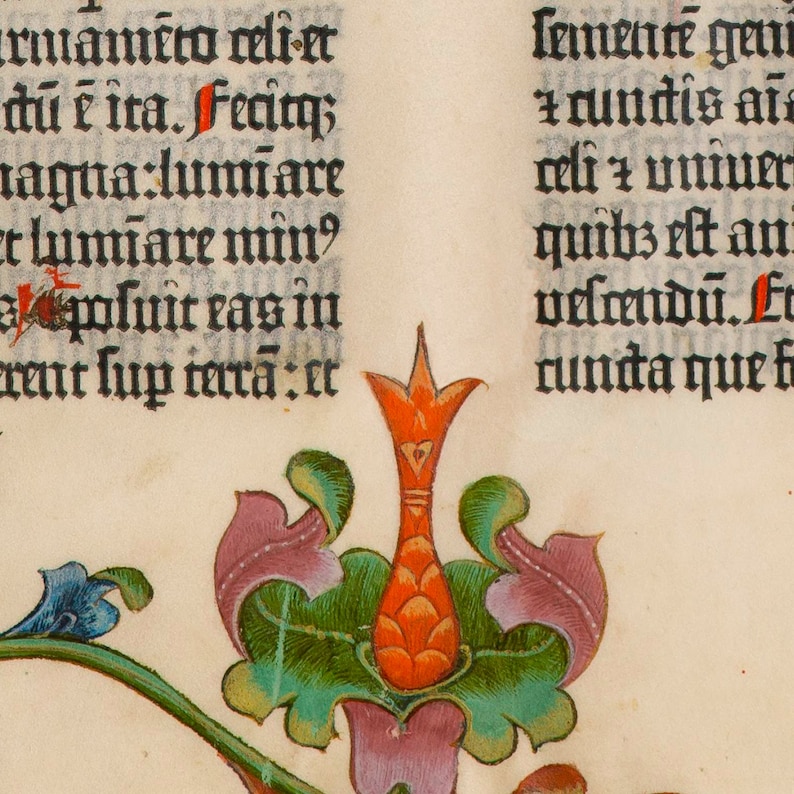 irmamēto celi·et
ctū ē ita. Fecitqꝫ
magna:lumīare
et lumīare minꝰ
posuit eas in
erent suꝑ terrā: et
sementē geni
⁊ cunctis aīa
celi ⁊ univer
quibꝫ est ani
vescendū. Et
cuncta que f